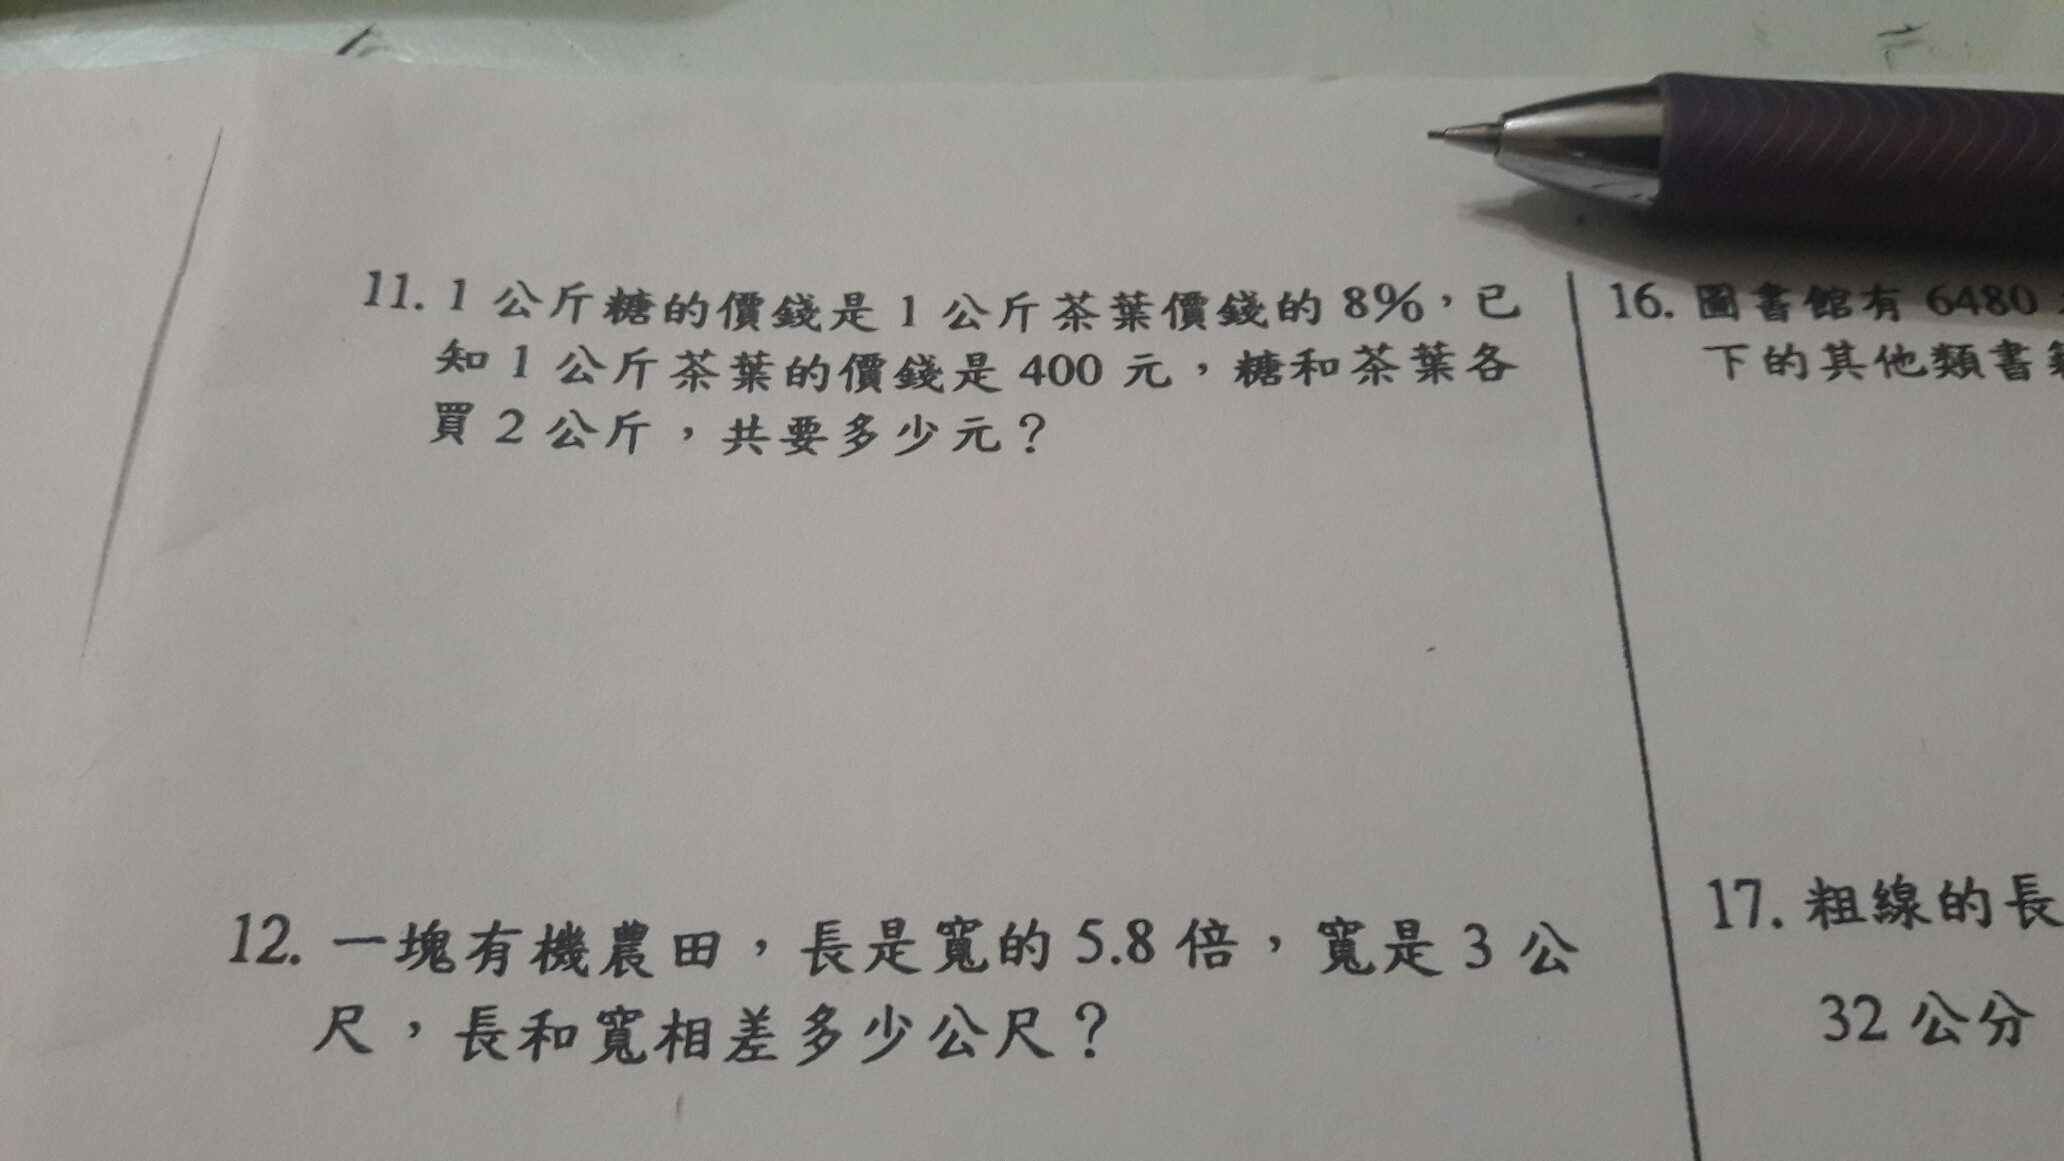 11. 1 公斤糖的價錢是 1 公斤茶葉價錢的 8%，已
知 1 公斤茶葉的價錢是 400 元，糖和茶葉各
買 2 公斤，共要多少元？
12. 一塊有機農田，長是寬的 5.8 倍，寬是 3 公
尺，長和寬相差多少公尺？
16. 圖書館有 6480
下的其他類書
17. 粗線的長
32 公分